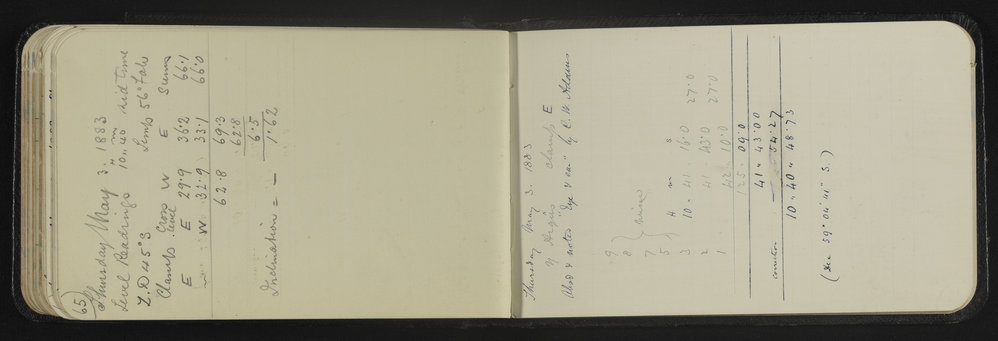 65)
Thursday May 3. 1883
Level Readings 10h. 40m sid time
Z.D 45°3 Temp 56° Fah
Clamp Cross level W E Sums
E E 29.9 36.2 66.1
" W 32.9 33.1 66.0
62.8 69.3
62.8
6.5
Inclination = – 1.62
Thursday May 3. 1883
η Argûs Clamp E
Obsd & noted "Eye & ear" by C. W. Adams
9
8
7
5
H m s
3 10 " 41 . 16.0 27.0
2 41 43.0 27.0
1 42 10.0
125 . 09.0
41 " 43.00
correction – 54.27
10 " 40 " 48.73
(Dec 59° 04' 41" S.)